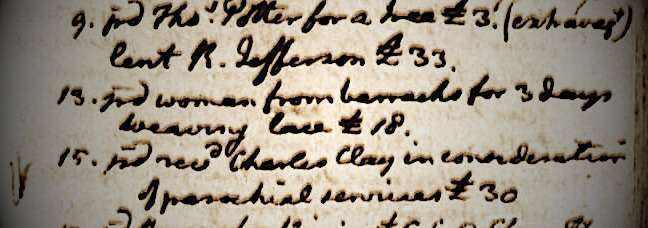 9. pd Thos. Potter for a tree £3. (extravagt)
lent R. Jefferson £33.
13. pd woman from barracks for 3 days
weaving lace £18.
15. pd revd Charles Clay in consideration
of parochial services £30